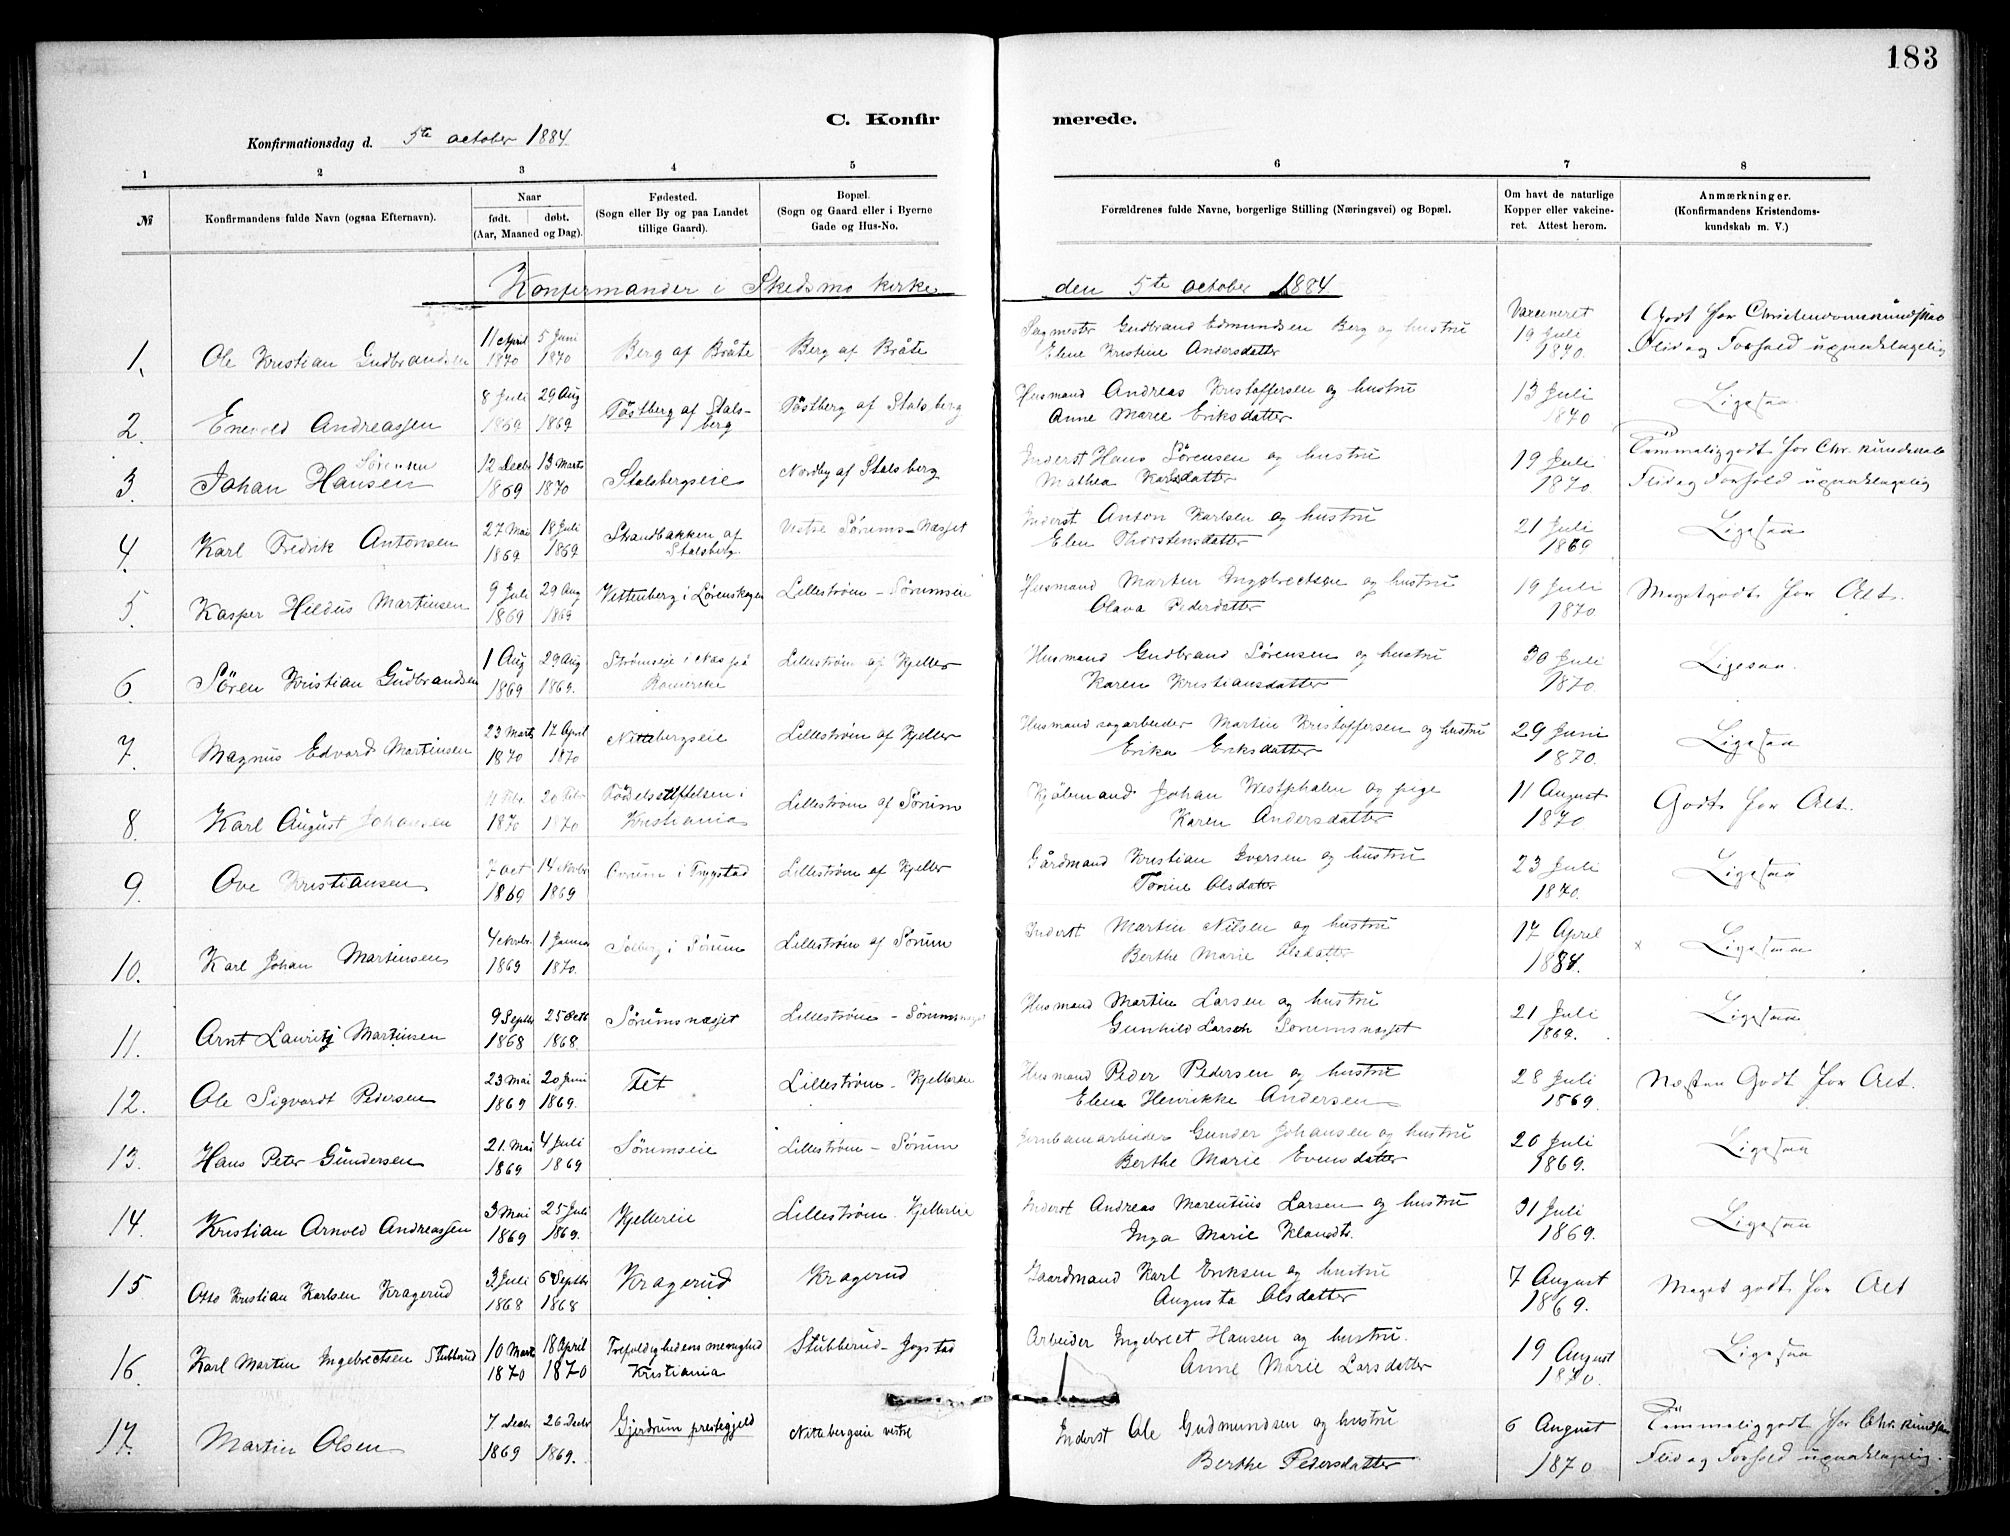 183
C. Konfirmerede.
Konfirmationsdag d. 5te october 1884
1 2 3 4 5 6 7 8
№ Konfirmandens fulde Navn (ogsaa Efternavn). Naar født. døbt. (Aar, Maaned og Dag). Fødested. (Sogn eller By og paa Landet tillige Gaard). Bopæl. (Sogn og Gaard eller i Byerne Gade og Hus-No. Forældrenes fulde Navne, borgerlige Stilling (Næringsvei) og Bopæl. Om havt de naturlige Kopper eller vakcineret. Attest herom. Anmærkninger. (Konfirmandens Kristendomskundskab m. V.)
Konfirmander i Skedsmo kirke den 5te october 1884
1. Ole Kristian Gudbrandsen 11 April 1870 5 Juni 1870 Berg af Bråte Berg af Bråte Sagmester Gudbrand Edmundsen Berg og hustru Vaccineret 19 Juli 1870. Godt for Christendomskundskab
Elene Kristine Andersdatter Flid og Forhold upaaklagelig
2. Enevold Andreassen 8 Juli 1869 29 Aug 1869 Töstberg af Stalsberg Töstberg af Stalsberg Husmand Andreas Kristoffersen og hustru 13 Juli 1870 Ligesaa.
Anne Marie Eriksdatter
3. Johan Hansen Sørensen 12 Decbr 1869 13 Marts 1870 Stalsbergseie Nordby af Stalsberg Inderst Hans Sørensen og hustru 19 Juli 1870 Temmelig godt for Chr. kundskab
Mathea Karlsdatter Flid og Forhold upaaklagelig
4. Karl Fredrik Antonsen 27 Mai 1869 18 Juli 1869 Strandbakken af Stalsberg. Vestre Sörums-Næsset Inderst Anton Karlsen og hustru 21 Juli 1869 Ligesaa
Elen Thorstensdatter
5. Kasper Hildus Martinsen 9 Juli 1869 29 Aug 1869 Vittenberg i Lørenskogen Lilleström - Sörumseie Husmand Martin Ingebrectsen og hustru 19 Juli 1870 Meget godt for Alt.
Olava Pedersdatter
6. Sören Kristian Gudbrandsen 1 Aug 1869 29 Aug 1869. Strömseie i Næs på Romerike Lilleström af Kjeller Husmand Gudbrand Sörensen og hustru 30 Juli 1870. Ligesaa.
Karen Kristiansdatter
7. Magnus Edvard Martinsen 23 Marts 1870 17 April 1870 Nittebergseie Lilleström af Kjeller Husmand sagarbeider Martin Kristoffersen og hustru 29 Juni 1870. Ligesaa
Erika Eriksdatter
8. Karl August Johansen Febr. 1870 20 Febr 1870 Födelsstiftelsen i Kristiania Lilleström af Sörum Kjöbmand Johan Westphalen og pige 11 August 1870. Godt for Alt.
Karen Andersdatter
9. Ove Kristiansen 7 Oct 1869 14 Novbr 1869 i Trygstad Lilleström af Kjeller Gårdmand Kristian Iversen og hustru 23 Juli 1870. Ligesaa
Olsdatter
10. Karl Johan Martinsen 4 Novbr. 1869 1 Januar 1870. Solberg i Sörum Lilleström af Sörum Inderst Martin Nilsen og hustru 17 April 1884. × Ligesaa
Berthe Marie Olsdatter
11. Arnt Lauritz Martinsen 9 Septbr 1868 25 Octb 1868. Sörumsnæsset Lilleström - Sörumsnæsset Husmand Martin Larsen og hustru 21 Juli 1869. Ligesaa
Gunhild Larsen Sorumsnæsset
12. Ole Sigvardt Pedersen 23 Mai 1869 20 Juni 1869. Fet Lilleström - Kjellereie Husmand Peder Pedersen og hustru 28 Juli 1869. Næsten Godt for Alt.
Elene Henrikke Andersen
13. Hans Peter Gundersen 21. Mai 1869 4 Juli 1869 Sörumseie Lilleström - Sörum Jernbanearbeider Gunder Johansen og hustru 20 Juli 1869. Ligesaa
Berthe Marie Evensdatter
14. Kristian Arnold Andreassen 3 Mai 1869 25 Juli 1869. Kjellereie Lilleström. Kjellereie Inderst Andreas Marentius Larsen og hustru 31 Juli 1869. Ligesaa
Inga Marie Klausdtr.
15. Otto Kristian Karlsen Kragerud 3 Juli 1868 6 Septbr 1868 Kragerud Kragerud Gaardmand Karl Eriksen og hustru 7 August 1869. Meget godt for Alt
Augusta Olsdatter
16. Karl Martin Ingebrectsen Stubberud 10 Mart 1870 18 April 1870 Trefoldighedens menighed Kristiania Stubberud - Jogstad Arbeider Ingebrect Hansen og hustru. 19 August 1870. Ligesaa
Anne Marie Larsdatter
17. Martin Olsen 7 Decbr 1869 26 Decbr 1869. Gjerdrum prestegjeld Nittebergseie vestre Inderst Ole Gudmundsen og hustru 6 August 1870 Temmelig godt for Chr. kundskab
Berthe Pedersdatter Flid og Forhold upaaklagelig.